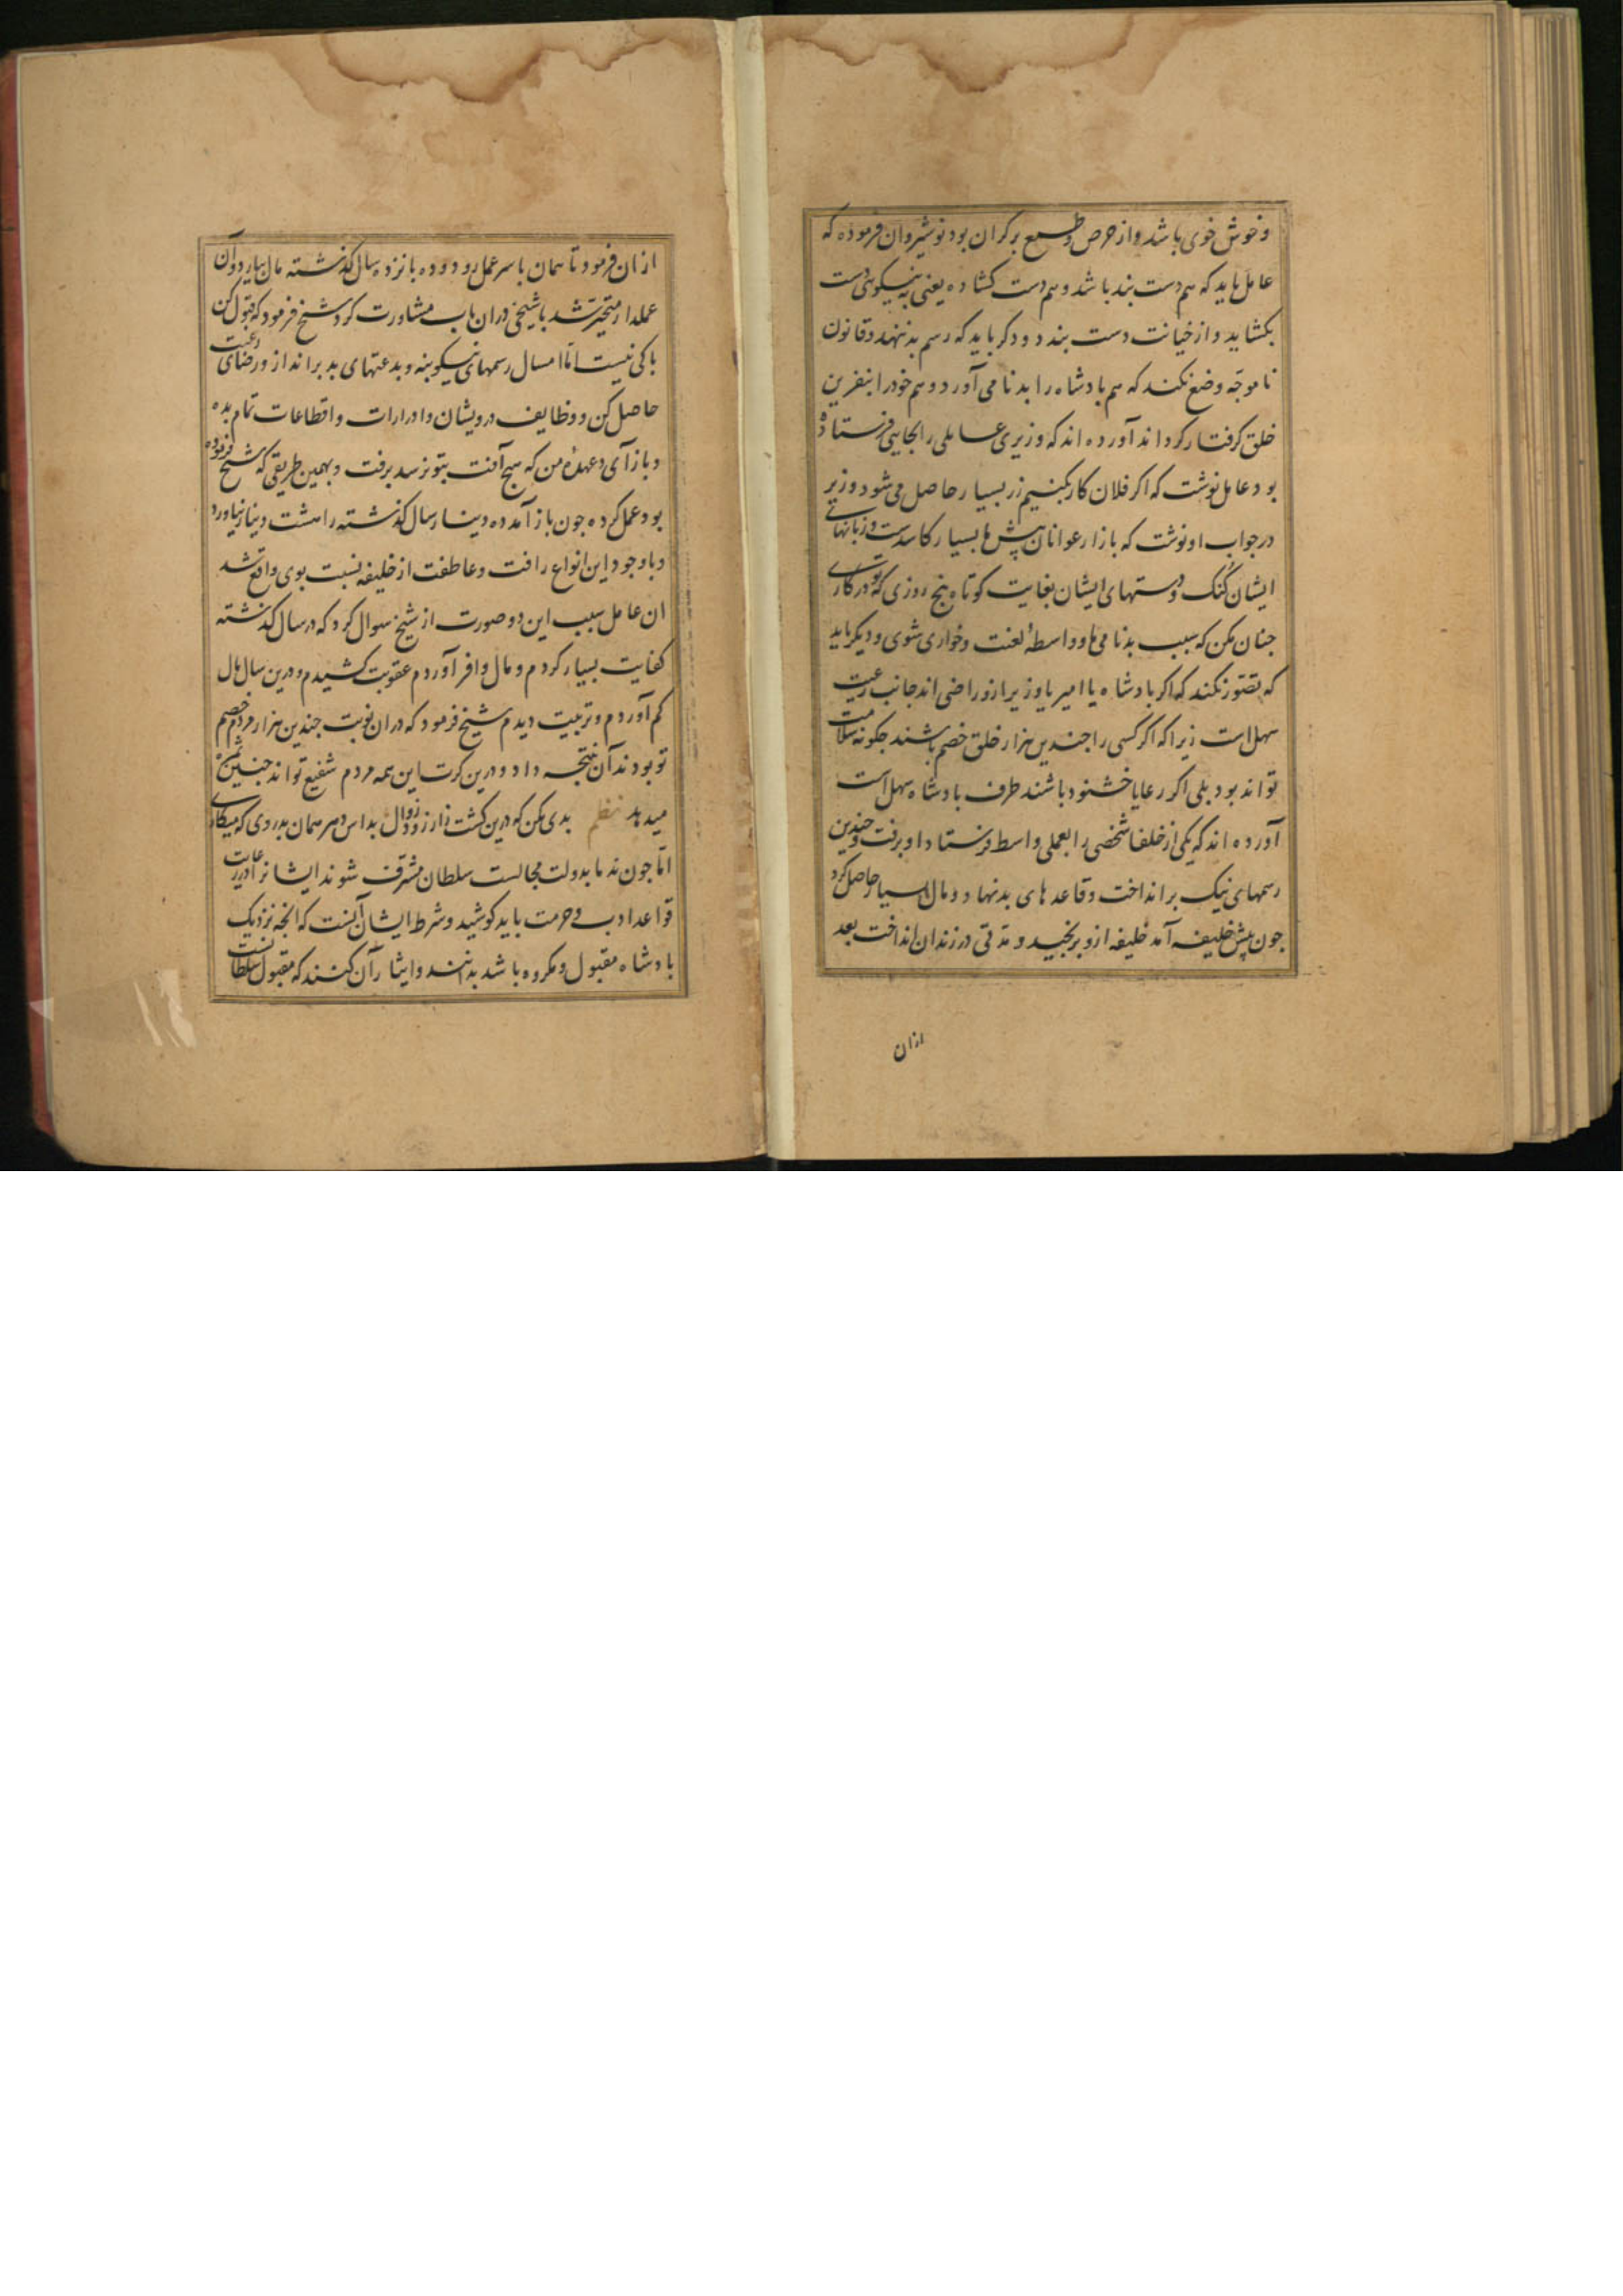 و خوش خوی باشد و از حرص و طمع بر کران بود نوشیروان فرموده که
عامل باید که هم دست بند باشد و هم دست کشاده یعنی به نیکویی دست
بکشاید و از خیانت دست بندد و دکر باید که رسم بد ننهد و قانون
نا موجّه وضع نکند که هم بادشاه را بدنامی آورد و هم خود را بنفرین
خلق کرفتار کرداند آورده اند که وزیری عاملی را بجایی فرستاده
بود عامل نوشت که اکر فلان کار بکنیم زر بسیار حاصل می شود وزیر
در جواب او نوشت که بازار عوانان پیش ما بسیار کاسدست و زبانهای
ایشان کُنک و دستهای ایشان بغایت کوتاه بنج روزی که تو در کاری
جنان مکن که سبب بدنامی ما و واسطهٔ لعنت و خواری شوی و دیکر باید
که تصوّر نکند که اکر بادشاه یا امیر یا وزیر ازو راضی اند جانب رعیت
سهل است زیرا که اکر کسی را جندین هزار خلق خصم باشند جکونه سلامت
تواند بود بلی اکر رعایا خشنود باشند طرف بادشاه سهل است
آورده اند که یکی از خلفا شخصی را بعملی واسط فرستاد او برفت و جندین
رسمهای نیک بر انداخت و قاعد های بد نهاد و مال بسیار حاصل کرد
جون پیش خلیفه آمد خلیفه ازو برنجید و مدّتی در زندان انداخت بعد
ازان
ازان فرمود تا همان باسر عمل رود و ده بانزده سال کذشته مال بیارد و آن
عملدار متحیّر شد با شیخی دران باب مشاورت کرد شیخ فرمود که قبول کن
باکی نیست امّا امسال رسمهای نیکو بنه و بدعتهای بد بر انداز و رضای رعیت
حاصل کن و وظایف درویشان و ادرارات و اقطاعات تمام بده
و باز آی و عهدهٔ من که هیج آفت بتو نرسد برفت و بهمین طریقی که شیخ فرموده
بود عمل کرده جون باز آمد ده دینار سال کذشته را هشت دینار نیاورد
و با وجود این انواع رافت و عاطفت از خلیفه نسبت بوی واقع شد
ان عامل سبب این دو صورت از شیخ سوال کرد که در سال کذشته
کفایت بسیار کردم و مال وافر آوردم عقوبت کشیدم و درین سال مال
کم آوردم و تربیت دیدم شیخ فرمود که دران نوبت جندین هزار مردم خصم
تو بودند آن نتیجه داد و درین کرت این همه مردم شفیع تواند جنین ثمره
میدهد نظم بدی مکن که درین کشت زار زود زوال بداس دهر همان بدروی که میکاری
امّا جون ندما بدولت مجالست سلطان مشرّف شوند ایشانرا در رعایت
قواعد ادب و حرمت باید کوشید و شرط ایشان آنست که انجه نزدیک
بادشاه مقبول و مکروه باشد بدانند و ایثار آن کنند که مقبول سلطانست